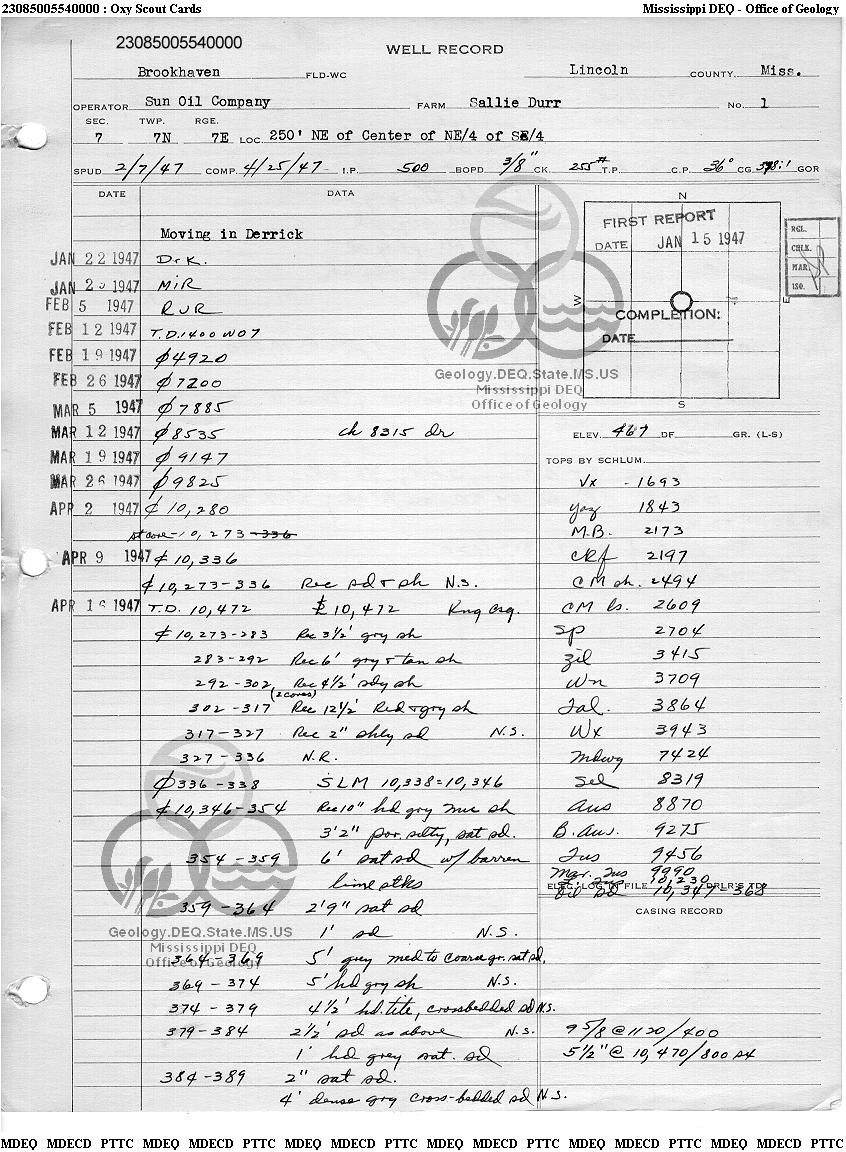 23085005540000 : Oxy Scout Cards Mississippi DEQ - Office of Geology
23085005540000
WELL RECORD
Brookhaven FLD-WC Lincoln COUNTY, Miss.
OPERATOR Sun Oil Company FARM Sallie Durr No. 1
SEC. TWP. RGE.
7 7N 7E LOC. 250' NE of Center of NE/4 of SE/4
SPUD 2/7/47 COMP. 4/25/47 I.P. 500 BOPD 3/8" CK. 255# T.P. C.P. 36° CG. GOR
DATE DATA
N
FIRST REPORT
DATE JAN 15 1947
W E
COMPLETION:
DATE
S
RGL.
CHLK.
MAR.
ISO.
Moving in Derrick
JAN 22 1947 DrK.
JAN 1947 MIR
FEB 5 1947 RUR
FEB 12 1947 T.D. 1400 WO7
FEB 19 1947 ₵ 4920
FEB 26 1947 ₵ 7200
MAR 5 1947 ₵ 7885
MAR 12 1947 ₵ 8535 ch 8315 dr
MAR 19 1947 ₵ 9147
MAR 26 1947 ₵ 9825
APR 2 1947 ₵ 10,280
st core - 10,273-336
APR 9 1947 ₵ 10,336
₵ 10,273-336 Rec sd & sh N.S.
APR 16 1947 T.D. 10,472 10,472 Rng Csg.
₵ 10,273-283 Rec 3 1/2' gry sh
283-292 Rec 6' gry & tan sh
292-302 Rec 4 1/2' sdy sh
(2 cores)
302-317 Rec 12 1/2' Red & gry sh
317-327 Rec 2" shly sd N.S.
327-336 N.R.
₵ 336-338 SLM 10,338=10,346
₵ 10,346-354 Rec 10" hd gry mic sh
3'2" por. silty, sat sd.
354-359 6' sat sd w/ barren
lime stks
359-364 2'9" sat sd
1' sd N.S.
364-369 5' grey med to coarse gr. sat sd.
369-374 5' hd gry sh N.S.
374-379 4 1/2' hd. tite, crossbedded sd N.S.
379-384 2 1/2' sd as above N.S.
1' hd grey sat. sd
384-389 2" sat sd.
4' dense gry cross-bedded sd N.S.
ELEV. 467 DF GR. (L-S)
TOPS BY SCHLUM.
Vx - 1693
Yaz 1843
M.B. 2173
CRf 2197
CM sh. 2494
CM ls. 2609
Sp 2704
Zil 3415
Wn 3709
Tal. 3864
Wx 3943
Mdwg 7424
Sel 8319
Aus 8870
B. Aus. 9275
Tus 9456
Mar. Tus 9990
10,230
ELEC. LOG IN FILE DRLR'S TD
Oil Sd 10,347-368
CASING RECORD
9 5/8 @ 1120/400
5 1/2" @ 10,470/800 sx
Geology.DEQ.State.MS.US
Mississippi DEQ
Office of Geology
Geology.DEQ.State.MS.US
Mississippi DEQ
Office of Geology
MDEQ MDECD PTTC MDEQ MDECD PTTC MDEQ MDECD PTTC MDEQ MDECD PTTC MDEQ MDECD PTTC MDEQ MDECD PTTC